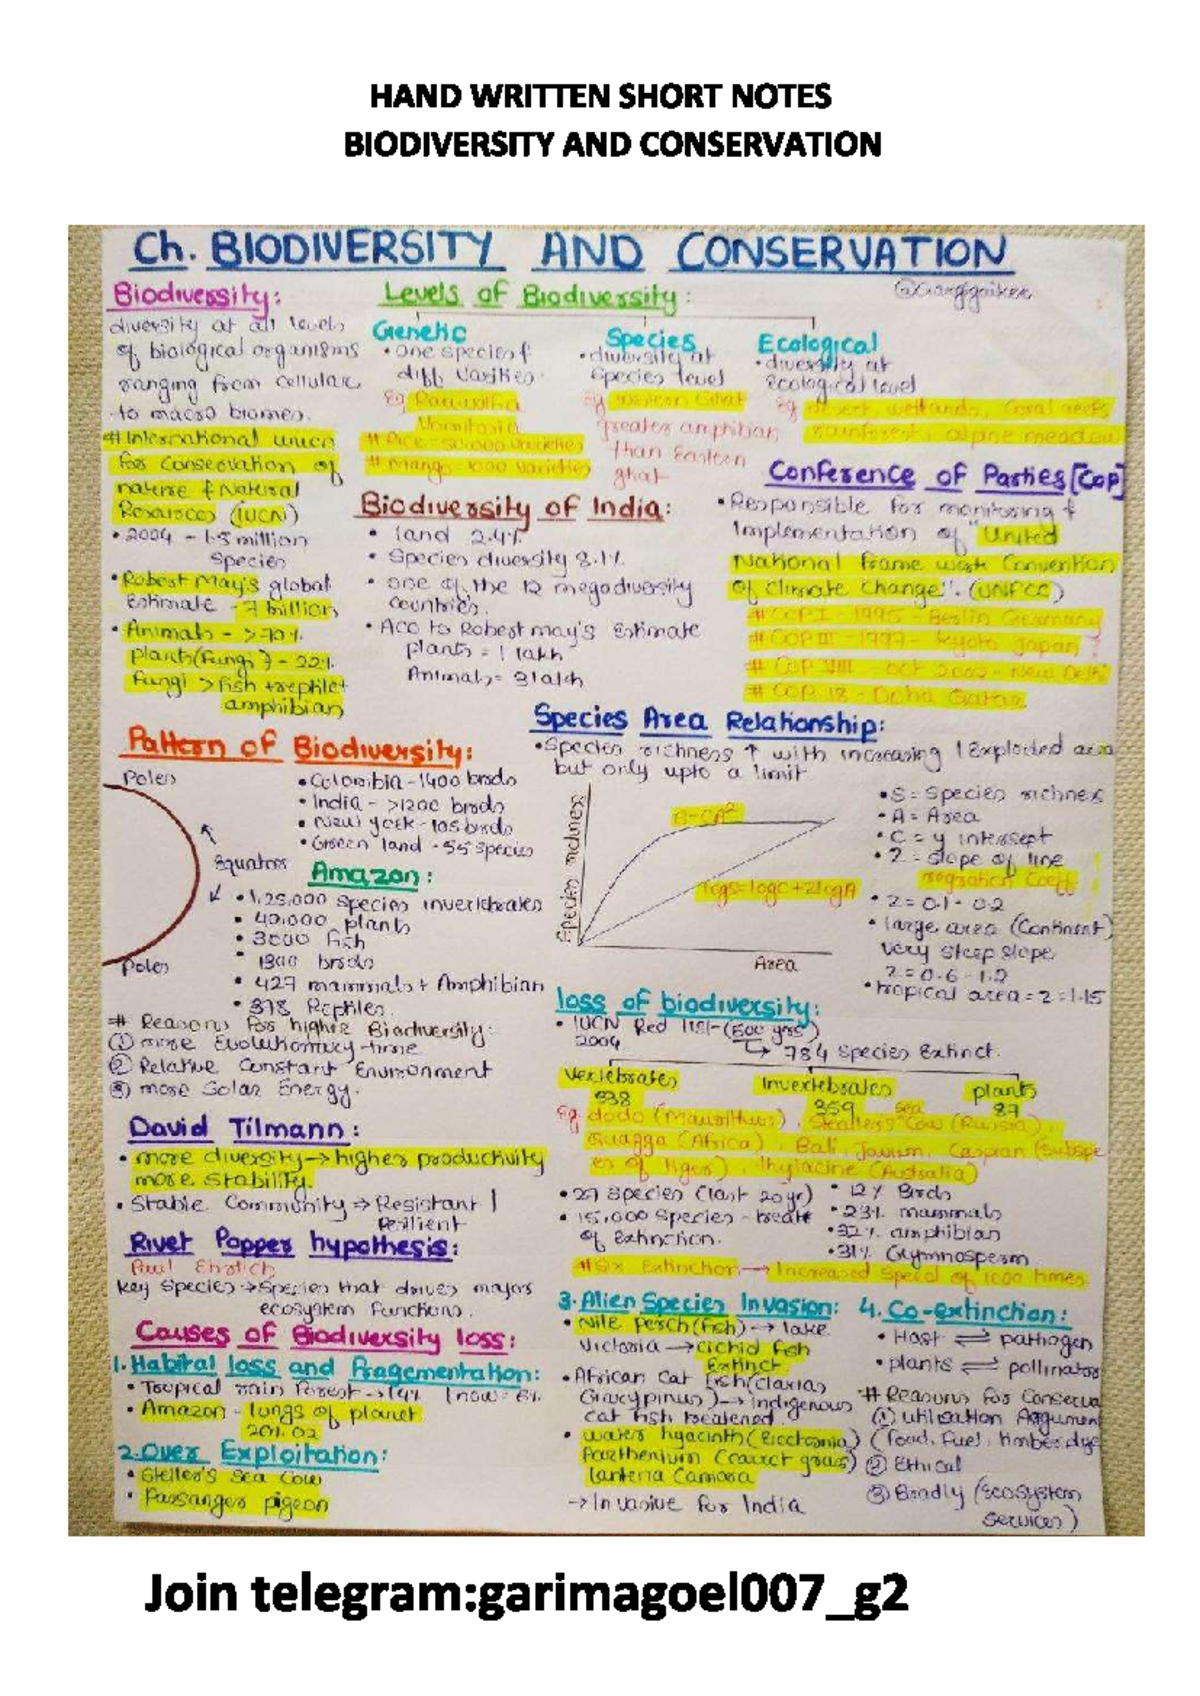 HAND WRITTEN SHORT NOTES
BIODIVERSITY AND CONSERVATION
Ch. BIODIVERSITY AND CONSERVATION
Biodiversity:
diversity at all levels
of biological organisms
ranging from cellular
to macro biomes.
# International union
for conservation of
nature & Natural
Resources (IUCN)
• 2004 - 1.5 million
species
• Robert May's global
Estimate - 7 million
• Animals - >70%
plants(fungi) - 22%
fungi > fish + reptile +
amphibian
Levels of Biodiversity:
Genetic
• one species &
diff varities.
Eg
# Rice = 50,000 varieties
# Mango = 1000 varieties
Species
• diversity at
species level
Eg Western Ghat
greater amphibian
than Eastern
ghat
Ecological
• diversity at
ecological level
Eg desert, wetlands, coral reefs
rainforest, alpine meadow
Biodiversity of India:
• land 2.4%
• Species diversity 8.1%
• one of the 12 megadiversity
countries.
• Acc to Robert may's Estimate
plants = 1 lakh
Animals = 3 lakh
Conference of Parties [COP]
• Responsible for monitoring &
Implementation of "United
National frame work Convention
of climate change". (UNFCC)
# COP I - 1995 - Berlin Germany
# COP III - 1997 - Kyoto Japan
# COP VIII - oct 2002 - New Delhi
# COP 18 - Doha Qatar
Pattern of Biodiversity:
Poles
Equator
Poles
• Colombia - 1400 birds
• India - >1200 birds
• New york - 105 birds
• Green land - 55 species
Amazon:
• 1,25,000 species invertebrates
• 40,000 plants
• 3000 fish
• 1300 birds
• 427 mammals + Amphibian
• 378 Reptiles.
# Reasons for higher Biodiversity:
① more Evolutionary time
② Relative Constant Environment
③ more Solar Energy.
Species Area Relationship:
• Species richness ↑ with increasing | Exploited area
but only upto a limit
Species richness
S=CA²
logs=logC+ZlogA
Area
• S = Species richness
• A = Area
• C = y intersept
• Z = slope of line
regration Coeff
• Z = 0.1 - 0.2
• large area (Continent)
very steep slope
Z = 0.6 - 1.2
• tropical area = Z = 1.15
David Tilmann:
• more diversity → higher productivity
more stability.
• Stable Community ⇒ Resistant |
Resilient
Rivet Popper hypothesis:
Paul Ehrlich
key species → Species that drives major
ecosystem functions.
loss of biodiversity:
• IUCN Red list - (500 yrs)
2004
↳ 784 species Extinct.
vertebrates
338
Invertebrates
359
plants
87
Eg. dodo (Mauritius), Steallers sea Cow (Russia),
Quagga (Africa), Bali, Javan, Caspian (Subspe
es of tiger), Thylacine (Australia)
• 27 species (last 20yr)
• 15,000 species - threate
of extinction.
• 12% Birds
• 23% mammals
• 32% amphibian
• 31% Gymnosperm
# Six Extinction → Increased speed of 1000 times.
Causes of Biodiversity loss:
1. Habital loss and Fragementation:
• Tropical rain forest → 14% | now = 6%
• Amazon - lungs of planet
20% O2
2. Over Exploitation:
• Steller's Sea Cow
• Passanger pigeon
3. Alien Species Invasion:
• Nile perch (fish) → lake
victoria → cichid fish
Extinct
• African Cat fish (clarias
Gracypinus) → indigenous
cat fish treatened.
• water hyacinth (Eicchornia)
Parthenium (carrot grass)
lanteria Camara
→ Invasive for India
4. Co-extinction:
• Host ⇌ pathogen
• plants ⇌ pollinator
# Reasons for Conserva
① utilisation Argumen
(food, fuel, timber, dye
② Ethical
③ Bradly (ecosystem
services)
Join telegram:garimagoel007_g2